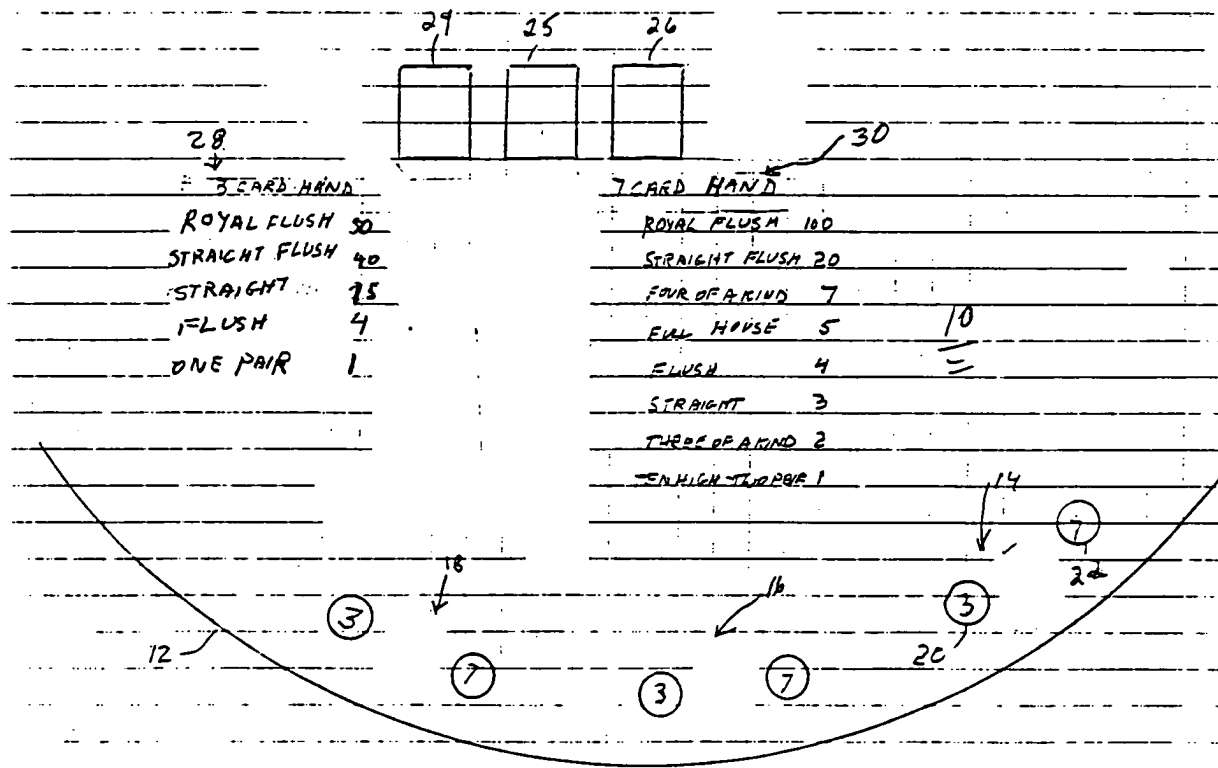 29 25 26
28
30
3 CARD HAND
ROYAL FLUSH 50
STRAIGHT FLUSH 40
STRAIGHT 25
FLUSH 4
ONE PAIR 1
7 CARD HAND
ROYAL FLUSH 100
STRAIGHT FLUSH 20
FOUR OF A KIND 7
FULL HOUSE 5
FLUSH 4
STRAIGHT 3
THREE OF A KIND 2
TEN HIGH TWO PAIR 1
10
14
7
22
18
16
3
3
12
20
7
3
7